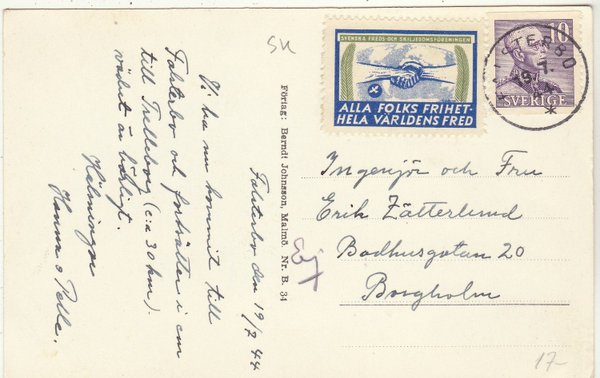 SK
SVENSKA FREDS- OCH SKILJEDOMSFÖRENINGEN
ALLA FOLKS FRIHET-
HELA VÄRLDENS FRED
10
SVERIGE
STERBO
Falsterbo den 19/7 44
Vi ha nu kommit till
Falsterbo och fortsätter i em
till Trelleborg (c:a 30 km).
vädret är härligt.
Hälsningar
Hanna o Pelle.
Förlag: Berndt Johnsson, Malmö. Nr. B. 34
Ingenjör och Fru
Erik Zätterlund
Badhusgatan 20
Borgholm
17-